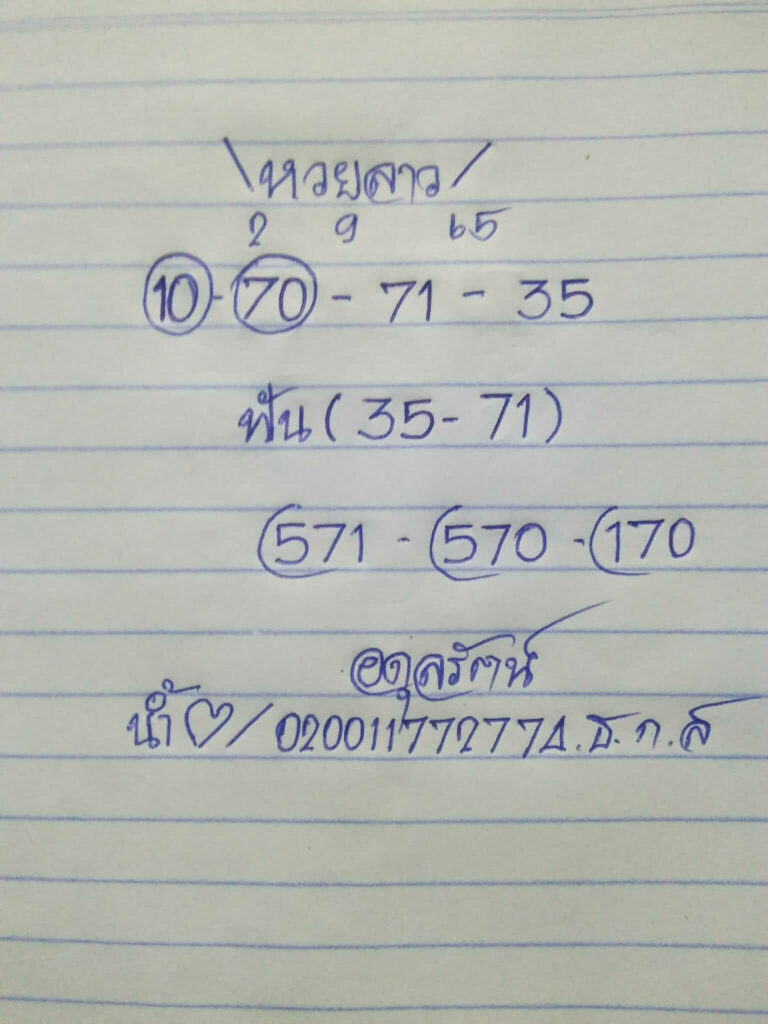 \หวยลาว/
2 9 65
10-70-71-35
ฟัน(35-71)
(571-(570-(170
อดุลรัตน์
น้ำ♡/020011772774.ธ.ก.ส